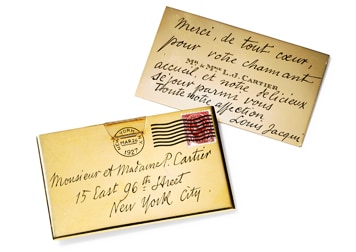 Merci, de tout cœur,
pour votre charmant
Mr & Mme L.-J. Cartier
accueil, et notre délicieux
séjour parmi vous
Toute notre affection
Louis Jacqu
NEW YORK
MAR 24
1927
Monsieur et Madame P. Cartier
15 East 96th Street
New York City.